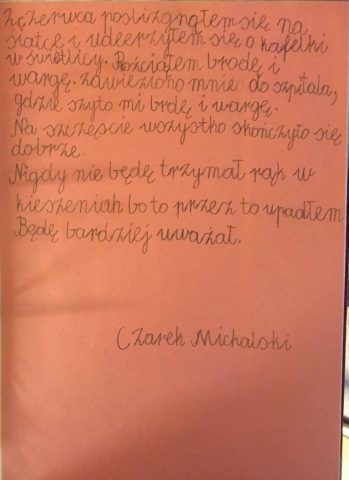 czerwca poślizgnąłem się na
siatce i udeerzyłem się o kafelki
w świetlicy. Rozciąłem brodę i
wargę. zawieziono mnie do szpitala,
gdzie szyto mi brdę i wargę.
Na szczęście wszystko skończyło się
dobrze.
Nigdy nie będę trzymał rąk w
kieszeniah bo to przez to upadłem
Będę bardziej uważał.
Czarek Michalski